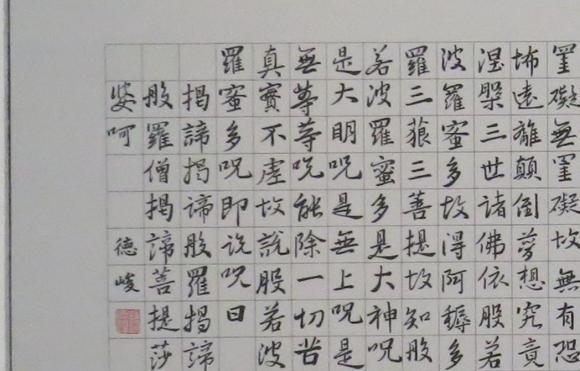 罣礙無罣礙故無有恐
怖遠離顛倒夢想究竟
涅槃三世諸佛依般若
波羅蜜多故得阿耨多
羅三藐三菩提故知般
若波羅蜜多是大神咒
是大明咒是無上咒是
無等等咒能除一切苦
真實不虛故說般若波
羅蜜多咒即說咒曰
揭諦揭諦般羅揭諦
般羅僧揭諦菩提莎
婆呵
德峻